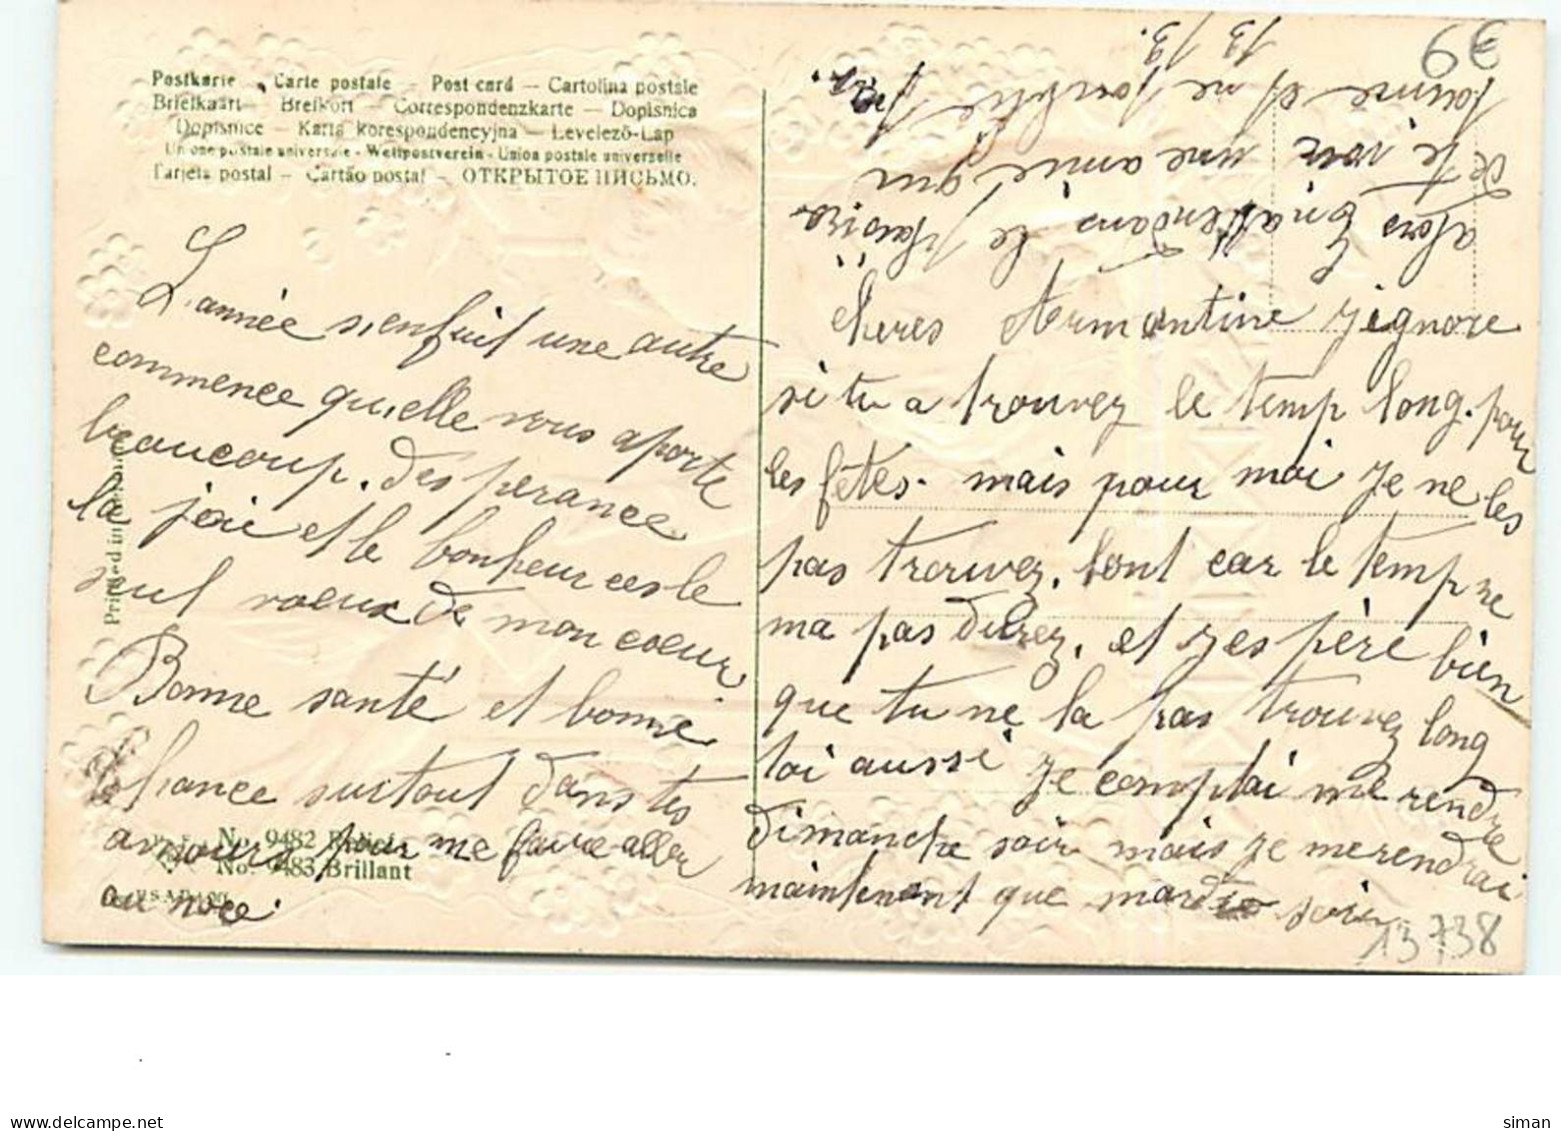 Postkarte – Carte postale – Post card – Cartolina postale
Briefkaart – Brefkort – Correspondenzkarte – Dopisnica
Dopisnice – Karta korespondencyjna – Levelező-Lap
Unione postale universale - Weltpostverein - Union postale universelle
Tarjeta postal – Cartão postal – ОТКРЫТОЕ ПИСЬМО.
L'année s'enfuit une autre
commence qu'elle vous aporte
beaucoup. desperance
la joie et le bonheur ces le
seul voeux de mon coeur
Bonne santé et bonne
chance surtout dans tes
amours pour me faire aller
au noce.
Printed in
No. 9482 Relief
No. 9483 Brillant
cheres Armantine jignore
si tu a trouvez le temp long. pour
les fêtes. mais pour moi je ne les
pas trouvez. lont car le temp ne
ma pas durez. et jes père bien
que tu ne la pas trouvez long
toi aussi je comptai me rendre
dimanche soir mais je me rendrai
maintenant que mardi soir
alors En attendans le plaisir
de te voir une amie qui
taime et ne toublie pas.
13/3.
39
13738
siman